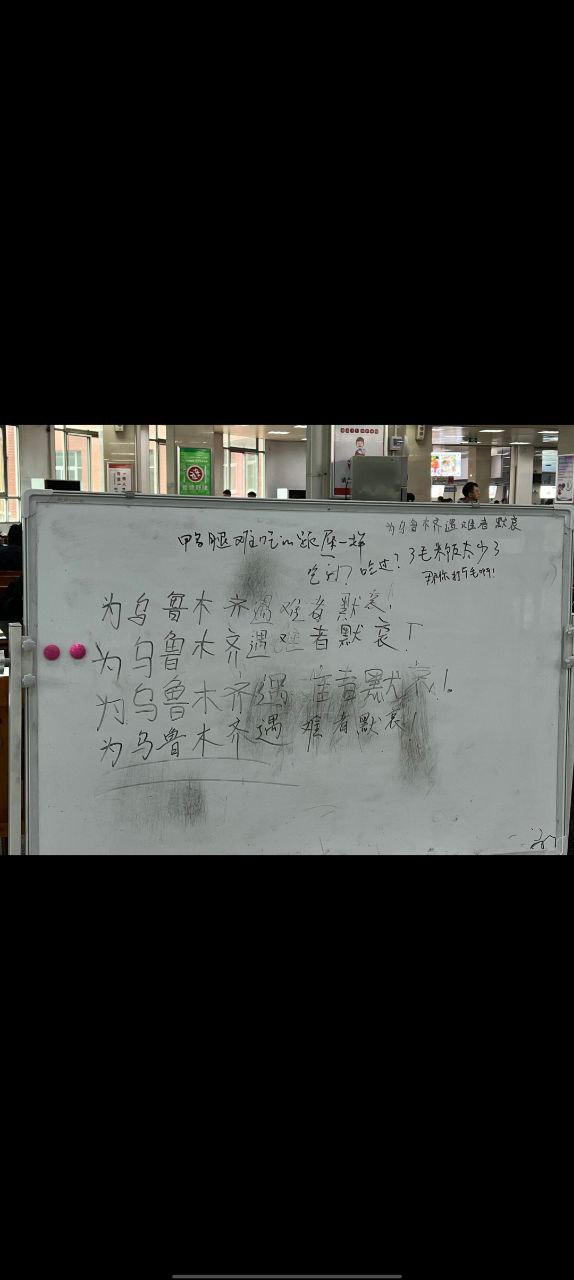 为乌鲁木齐遇难者默哀
鸭腿难吃的跟屎一样
吃过? 3毛米饭太少了
那你打5毛啊!
为乌鲁木齐遇难者默哀!
为乌鲁木齐遇难者默哀!
为乌鲁木齐遇难者默哀!。
为乌鲁木齐遇难者默哀!